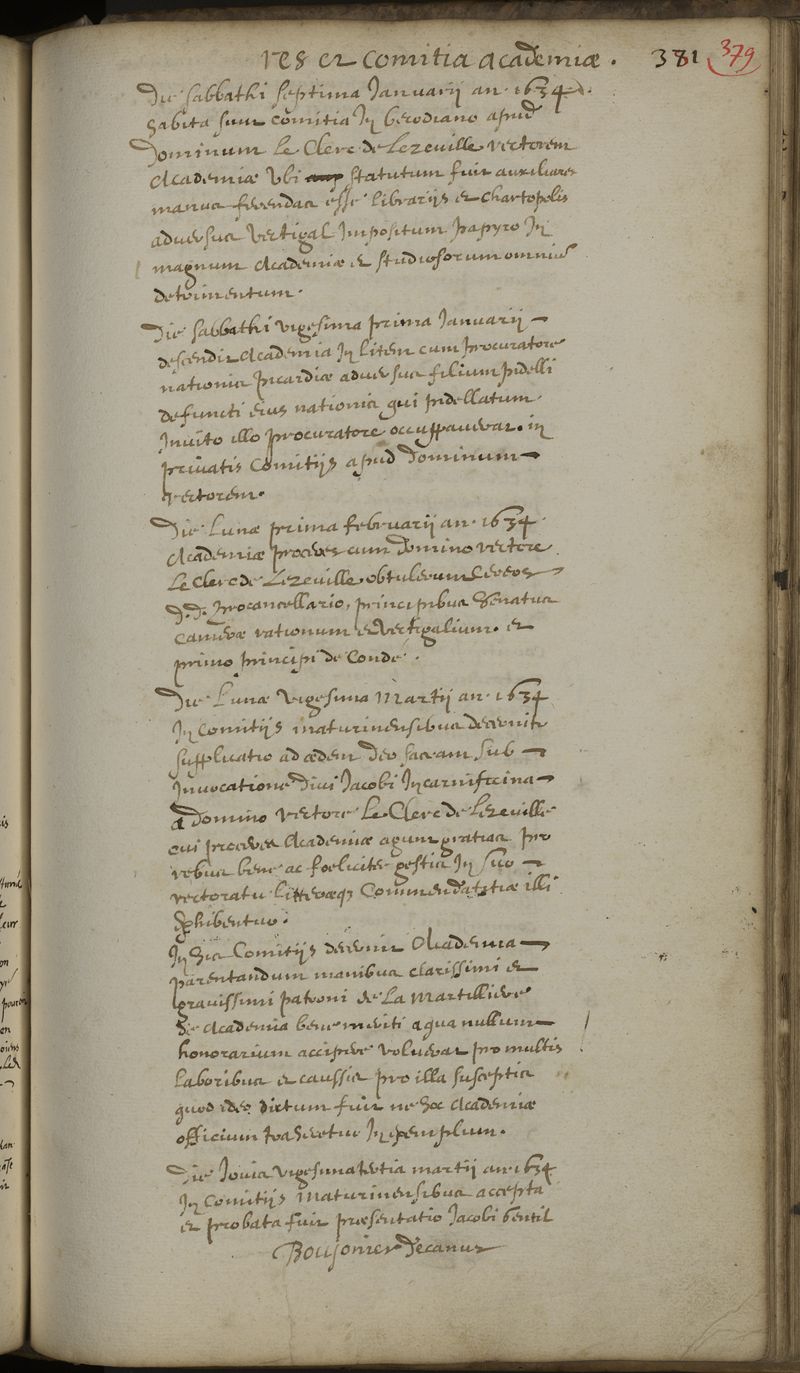 res et comitia academiæ. 381 379
Die sabbathi septima Januarii an. 1634.
habita sunt comitia In becodiano apud
Dominum Le Clerc de Lezeville rectorem
Academiæ Ubi statutum fuit auxiliares
manus ferendas esse librariis et chartopolis
adversus vectigal Impositum papyro In
magnum Academiæ et studiosorum omniū
detrimentum.
Die sabbathi vigesima prima Januarii
descendit Academia In litem cum procuratore
nationis picardiæ adversus filium pidelli
defuncti eius nationis qui pidellatum
Invito illo procuratore occuppaverat. in
privatis Comitiis apud Dominum
rectorem.
Die Lunæ prima februarii an. 1634
Academiæ proceres cum Domino rectore
Le Clerc de Lezeville obtulerunt Cereos
D. D. procancellario, principibus Senatus
Cameræ rationum et vectigalium. et
primo principi de Condé.
Die Lunæ vigesima Martii an. 1634
In comitiis maturinensibus decernitr
supplicatio ad ædem Deo sacram sub
Invocatione Divi Jacobi In carnificina
a Domino rectore Le Clerc de Lezeville
cui proceres Academiæ agunt gratias pro
rebus bene ac foeliciter gestis In suo
rectoratu litteræq3 Commendatitiæ illi
exhibentur.
In his Comitiis decernit Academia
parentandum manibus clarissimi et
gravissimi patroni de La Martilliere
de Academia bene meriti a qua nullum
honorarium accipere voluerat pro multis
laboribus et caussis pro illa susceptis
quod ideo dictum fuit ne hoc Academiæ
officium traheretur In exemplum.
Die Jovis vigesima tertia martii an. 1634
In Comitiis Maturinensibus accepta
et probata fuit præsentatio Jacobi Gentil
Boujonier Decanus